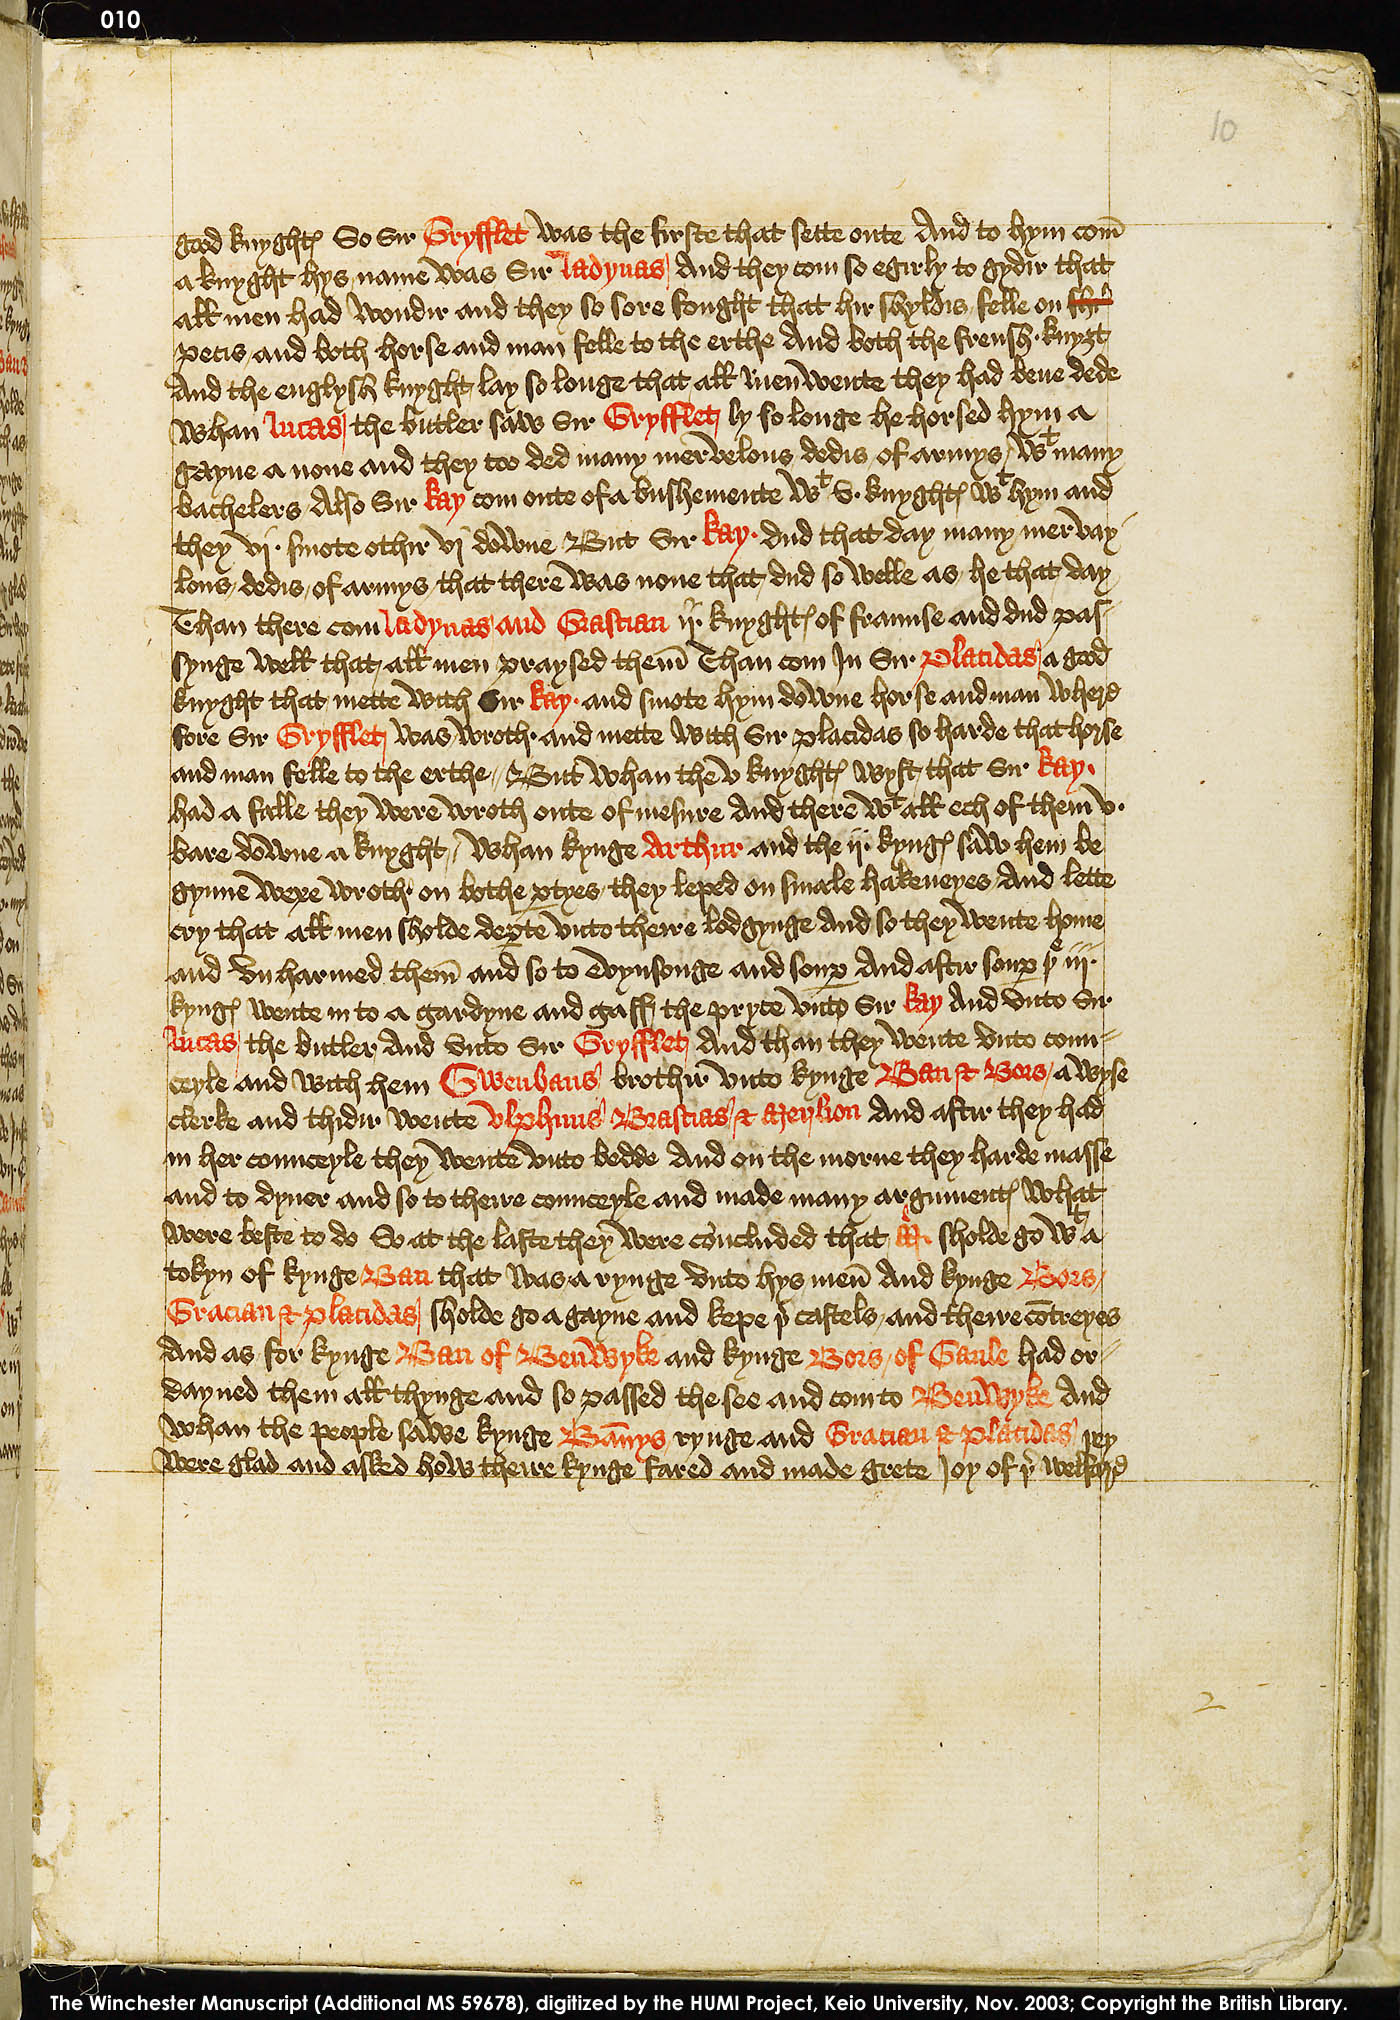 010
10
good knyghtes So Sir Gryfflet was the firste that sette oute And to hym com̄
a knyght hys name was Sir ladynas And they com so egirly to gydir that
all men had wondir and they so sore fought that hir shyldis felle on
pecis and both horse and man felle to the erthe And both the frensh knyȝt
And the englysh knyght lay so longe that all men wente they had bene dede
Whan lucas the butler saw Sir Gryfflet ly so longe he horsed hym a
gayne a none and they too ded many mervelous dedis of armys wt many
bachelers Also Sir kay com oute of a bushemente wt v. knyghtes wt hym and
they vj. smote othir vj downe But Sir kay. dud that day many mervay
lous dedis of armys that there was none that dud so welle as he that day
Than there com ladynas and Grastian ij. knyghtes of fraunse and dud pas
synge well that all men praysed them̄ Than com In Sir Placidas a good
knyght that mette with Sir kay. and smote hym downe horse and man where
fore Sir Gryfflet was wroth. and mette with Sir placidas so harde that horse
and man felle to the erthe // But whan the v knyghtes wyst that Sir kay.
had a falle they were wroth oute of mesure And there wt all ech of them v.
bare downe a knyght // Whan kynge Arthur and the ij. kynges saw hem be
gynne wexe wroth. on bothe ptyes they leped on smale hakeneyes And lette
cry that all men sholde depte unto theire lodgynge And so they wente home
and vnharmed them̄ and so to evynsonge and soup And aftir soup þe iij.
kynges wente in to a gardyne and gaff the pryce vnto Sir kay And vnto Sir
lucas the butler And vnto Sir Gryfflet And than they wente vnto coun=
ceyle and with hem Gwenbaus brothir vnto kynge Ban & Bors a wyse
clerke and thidir wente vlphuns Brastias & Merlion And aftir they had
in her counceyle they wente vnto bedde And on the morne they harde masse
and to dyner and so to theire counceyle and made many argumentes what
were beste to do So at the laste they were cōncluded that M. sholde go wt a
tokyn of kynge Ban that was a rynge vnto hys men̄ And kynge Bors
Gracian & Placidas sholde go a gayne and kepe þr castels and theire cōtreyes
And as for kynge Ban of Benwyke and kynge Bors of Gaule had or=
dayned them all thynge and so passed the see and com to Benwyke And
whan the people sawe kynge Bānys rynge and Gracian & Placidas þey
were glad and asked how theire kynge fared and made grete Joy of þr welfare
2
The Winchester Manuscript (Additional MS 59678), digitized by the HUMI Project, Keio University, Nov. 2003; Copyright the British Library.